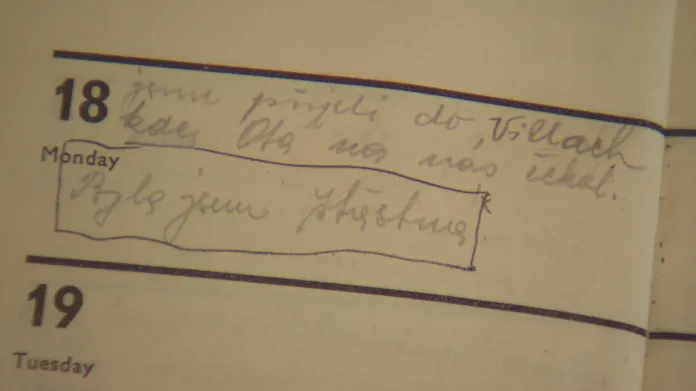 18
jsme přijeli do Villach
kde Ota na nás čekal.
Monday
Byla jsem šťastná.
19
Tuesday